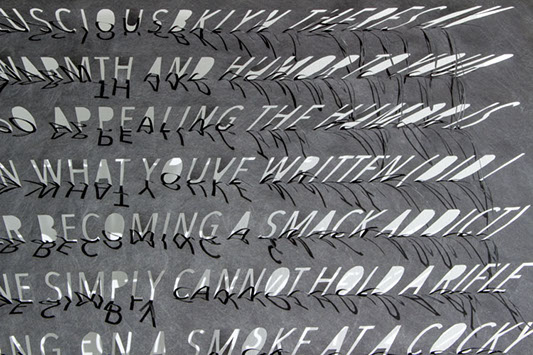 NSCIOUSBKLYN THEYES IN
WARMTH AND HUMOR
SO APPEALING THE HUMOR IS
N WHAT YOUVE WRITTEN
R BECOMING A SMACK ADDICT
NE SIMPLY CANNOT HOLD A RIFLE
ING EVA SMOKE AT A COCKY